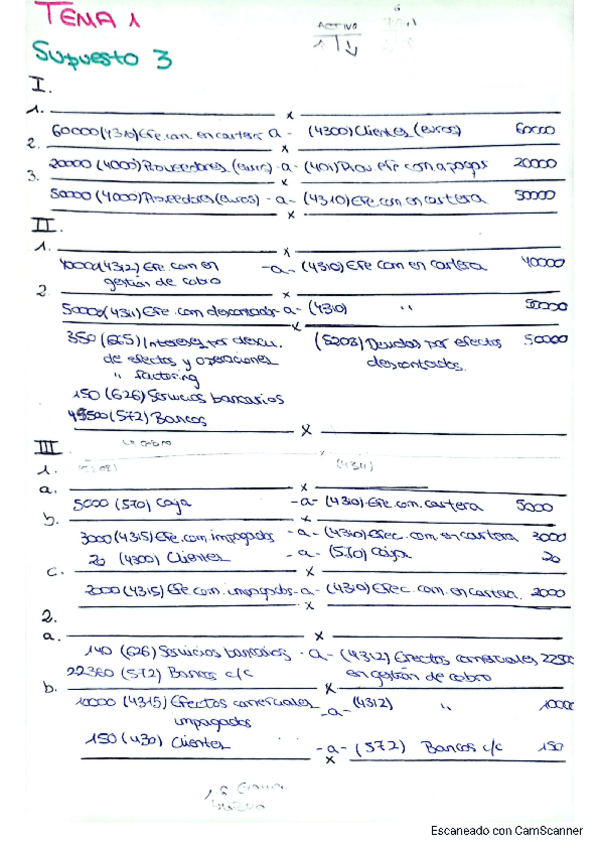 TEMA 1
ACTIVO
Supuesto 3
I.
1. x
60000 (4310) Efe.com. en cartera a - (4300) Clientes (euros) 60000
2. x
20000 (4000) Proveedores (euros) -a- (401) Prov. efe com a pagar 20000
3. x
50000 (4000) Proveedores (euros) -a- (4310) Efe.com en cartera 50000
x
II.
1. x
40000 (4312) Efe. com en gestión de cobro -a- (4310) Efe com en cartera 40000
2. x
50000 (4311) Efe. com descontados -a- (4310) " 50000
x
350 (665) Intereses por descu. de efectos y operaciones " factoring (5208) Deudas por efectos descontados. 50000
150 (626) Servicios bancarios
49500 (572) Bancos
x
III
1. (4311)
a. x
5000 (570) Caja -a- (4310) Efe. com. cartera 5000
b. x
3000 (4315) Efe. com impagados -a- (4310) Efec. com. en cartera 3000
20 (4300) Clientes -a- (570) Caja 20
c. x
2000 (4315) Efe com. impagados -a- (4310) Efec. com. en cartera. 2000
x
2.
a. x
140 (626) Servicios bancarios -a- (4312) Efectos comerciales 22500
22360 (572) Bancos c/c en gestión de cobro
b. x
10000 (4315) Efectos comerciales impagados -a- (4312) " 10000
150 (430) Clientes -a- (572) Bancos c/c 150
x
Escaneado con CamScanner